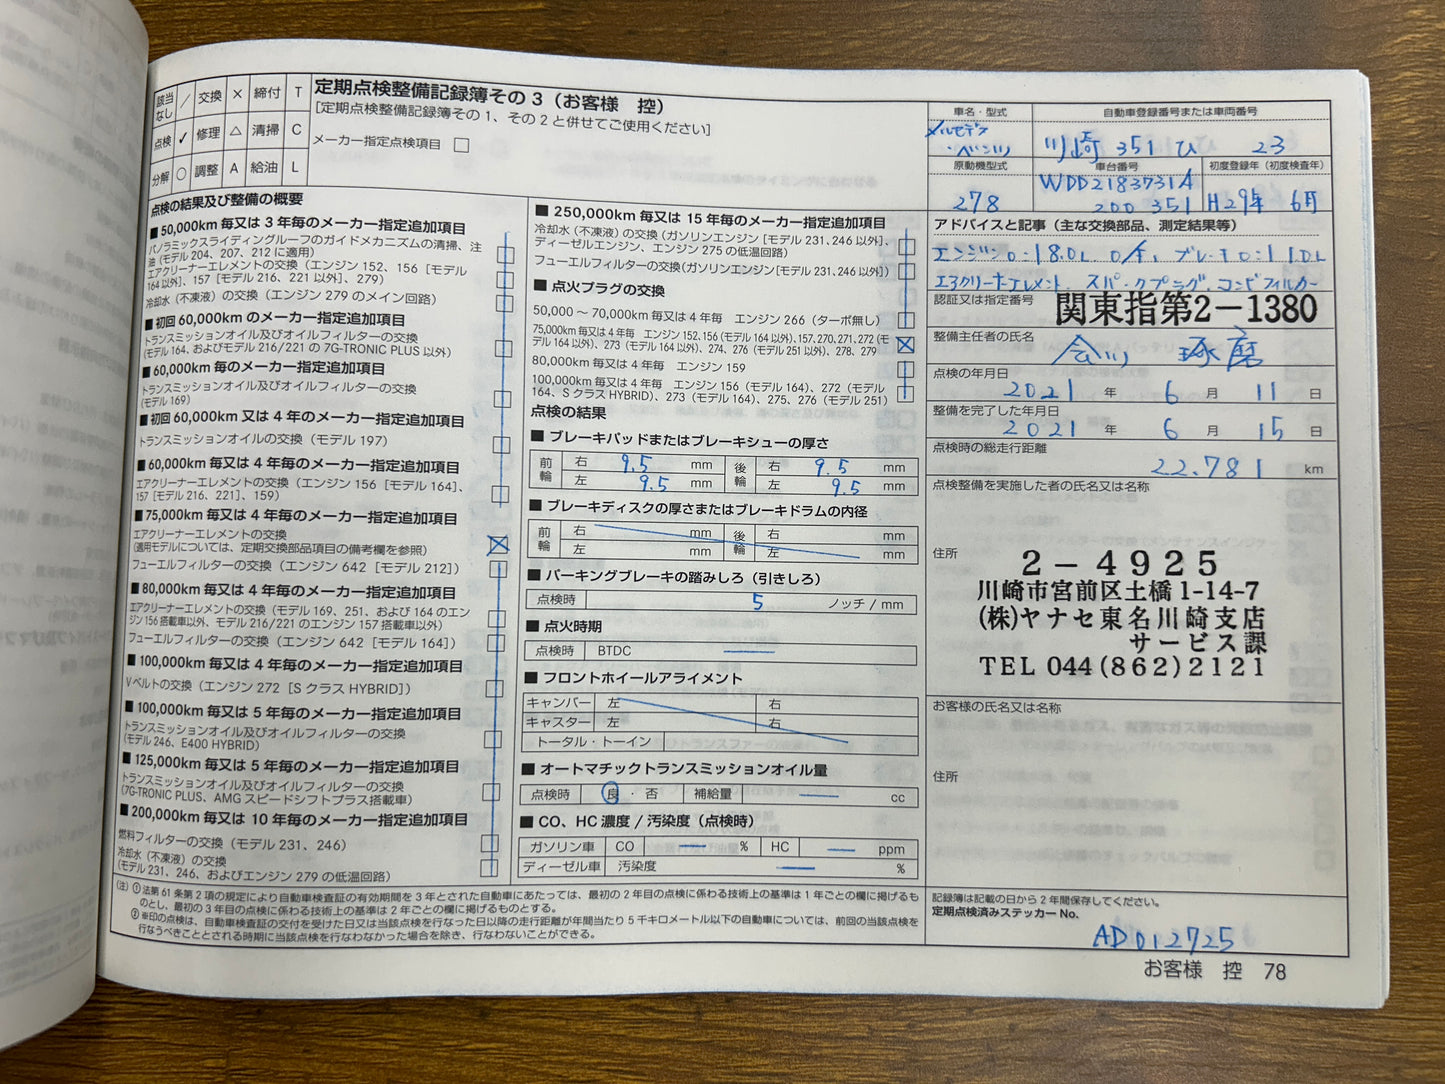 該当なし / 交換 × 締付 T
点検 ✓ 修理 △ 清掃 C
分解 ○ 調整 A 給油 L
定期点検整備記録簿その3（お客様 控）
[定期点検整備記録簿その1、その2と併せてご使用ください]
メーカー指定点検項目 □
点検の結果及び整備の概要
■ 50,000km 毎又は 3 年毎のメーカー指定追加項目
パノラミックスライディングルーフのガイドメカニズムの清掃、注
油（モデル 204、207、212 に適用）
エアクリーナーエレメントの交換（エンジン 152、156［モデル
164 以外］、157［モデル 216、221 以外］、279）
冷却水（不凍液）の交換（エンジン 279 のメイン回路）
■ 初回 60,000km のメーカー指定追加項目
トランスミッションオイル及びオイルフィルターの交換
（モデル 164、およびモデル 216/221 の 7G-TRONIC PLUS 以外）
■ 60,000km 毎のメーカー指定追加項目
トランスミッションオイル及びオイルフィルターの交換
（モデル 169）
■ 初回 60,000km 又は 4 年毎のメーカー指定追加項目
トランスミッションオイルの交換（モデル 197）
■ 60,000km 毎又は 4 年毎のメーカー指定追加項目
エアクリーナーエレメントの交換（エンジン 156［モデル 164］、
157［モデル 216、221］、159）
■ 75,000km 毎又は 4 年毎のメーカー指定追加項目
エアクリーナーエレメントの交換
（適用モデルについては、定期交換部品項目の備考欄を参照）
フューエルフィルターの交換（エンジン 642［モデル 212］）
■ 80,000km 毎又は 4 年毎のメーカー指定追加項目
エアクリーナーエレメントの交換（モデル 169、251、および 164 のエン
ジン 156 搭載車以外、モデル 216/221 のエンジン 157 搭載車以外）
フューエルフィルターの交換（エンジン 642［モデル 164］）
■ 100,000km 毎又は 4 年毎のメーカー指定追加項目
V ベルトの交換（エンジン 272［S クラス HYBRID］）
■ 100,000km 毎又は 5 年毎のメーカー指定追加項目
トランスミッションオイル及びオイルフィルターの交換
（モデル 246、E400 HYBRID）
■ 125,000km 毎又は 5 年毎のメーカー指定追加項目
トランスミッションオイル及びオイルフィルターの交換
（7G-TRONIC PLUS、AMG スピードシフトプラス搭載車）
■ 200,000km 毎又は 10 年毎のメーカー指定追加項目
燃料フィルターの交換（モデル 231、246）
冷却水（不凍液）の交換
（モデル 231、246、およびエンジン 279 の低温回路）
■ 250,000km 毎又は 15 年毎のメーカー指定追加項目
冷却水（不凍液）の交換（ガソリンエンジン［モデル 231、246 以外］、
ディーゼルエンジン、エンジン 275 の低温回路）
フューエルフィルターの交換（ガソリンエンジン［モデル 231、246 以外］）
■ 点火プラグの交換
50,000 ～ 70,000km 毎又は 4 年毎 エンジン 266（ターボ無し）
75,000km 毎又は 4 年毎 エンジン 152、156（モデル 164 以外）、157、270、271、272（モ
デル 164 以外）、273（モデル 164 以外）、274、276（モデル 251 以外）、278、279
80,000km 毎又は 4 年毎 エンジン 159
100,000km 毎又は 4 年毎 エンジン 156（モデル 164）、272（モデル
164、S クラス HYBRID）、273（モデル 164）、275、276（モデル 251）
点検の結果
■ ブレーキパッドまたはブレーキシューの厚さ
前輪 右 9.5 mm 後輪 右 9.5 mm
左 9.5 mm 左 9.5 mm
■ ブレーキディスクの厚さまたはブレーキドラムの内径
前輪 右 mm 後輪 右 mm
左 mm 左 mm
■ パーキングブレーキの踏みしろ（引きしろ）
点検時 5 ノッチ / mm
■ 点火時期
点検時 BTDC
■ フロントホイールアライメント
キャンバー 左 右
キャスター 左 右
トータル・トーイン
■ オートマチックトランスミッションオイル量
点検時 良 ・ 否 補給量 cc
■ CO、HC 濃度 / 汚染度（点検時）
ガソリン車 CO % HC ppm
ディーゼル車 汚染度 %
（注）① 法第 61 条第 2 項の規定により自動車検査証の有効期間を 3 年とされた自動車にあたっては、最初の 2 年目の点検に係わる技術上の基準は 1 年ごとの欄に掲げるも
のとし、最初の 3 年目の点検に係わる技術上の基準は 2 年ごとの欄に掲げるものとする。
② ※印の点検は、自動車検査証の交付を受けた日又は当該点検を行なった日以降の走行距離が年間当たり 5 千キロメートル以下の自動車については、前回の当該点検を
行なうべきこととされる時期に当該点検を行なわなかった場合を除き、行なわないことができる。
車名・型式 自動車登録番号または車両番号
メルセデス
・ベンツ 川崎 351 ひ 23
原動機型式 車台番号 初度登録年（初度検査年）
278 WDD2183731A
200351 H29年 6月
アドバイスと記事（主な交換部品、測定結果等）
エンジンO:18.0L. O/E, ブレーキO:1.0L
エアクリーナーエレメント. スパークプラグ. コンビフィルター
認証又は指定番号 関東指第2－1380
整備主任者の氏名
琢磨
点検の年月日
2021 年 6 月 11 日
整備を完了した年月日
2021 年 6 月 15 日
点検時の総走行距離
22.781 km
点検整備を実施した者の氏名又は名称
住所
2－4925
川崎市宮前区土橋1-14-7
(株)ヤナセ東名川崎支店
サービス課
TEL 044(862)2121
お客様の氏名又は名称
住所
記録簿は記載の日から 2 年間保存してください。
定期点検済みステッカー No.
AD012725
お客様 控 78